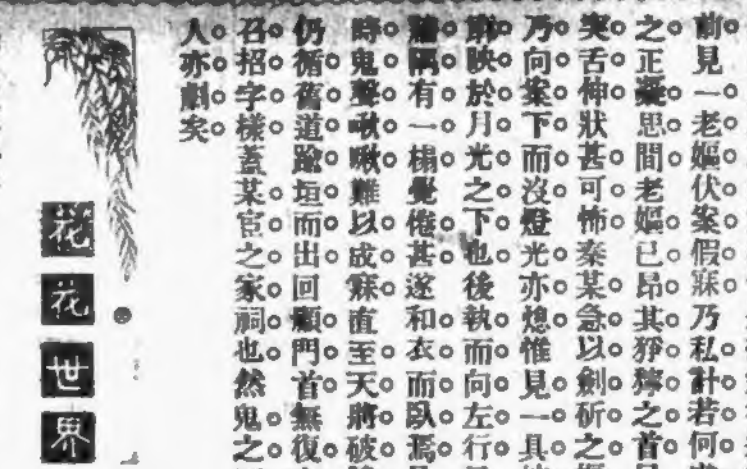 前見一老嫗伏案假寐乃私計若何
之正凝思間老嫗已昂其猙獰之首
突舌伸狀甚可怖秦某急以劍斫之
乃向案下而沒燈光亦熄惟見一具
映於月光之下也後執而向左行
隔有一榻覺倦甚遂和衣而臥焉
時鬼聲啾啾難以成寐直至天將破
仍循舊道踰垣而出回顧門首無復
召招字樣蓋某宦之家祠也然鬼之
人亦劇矣
花花世界